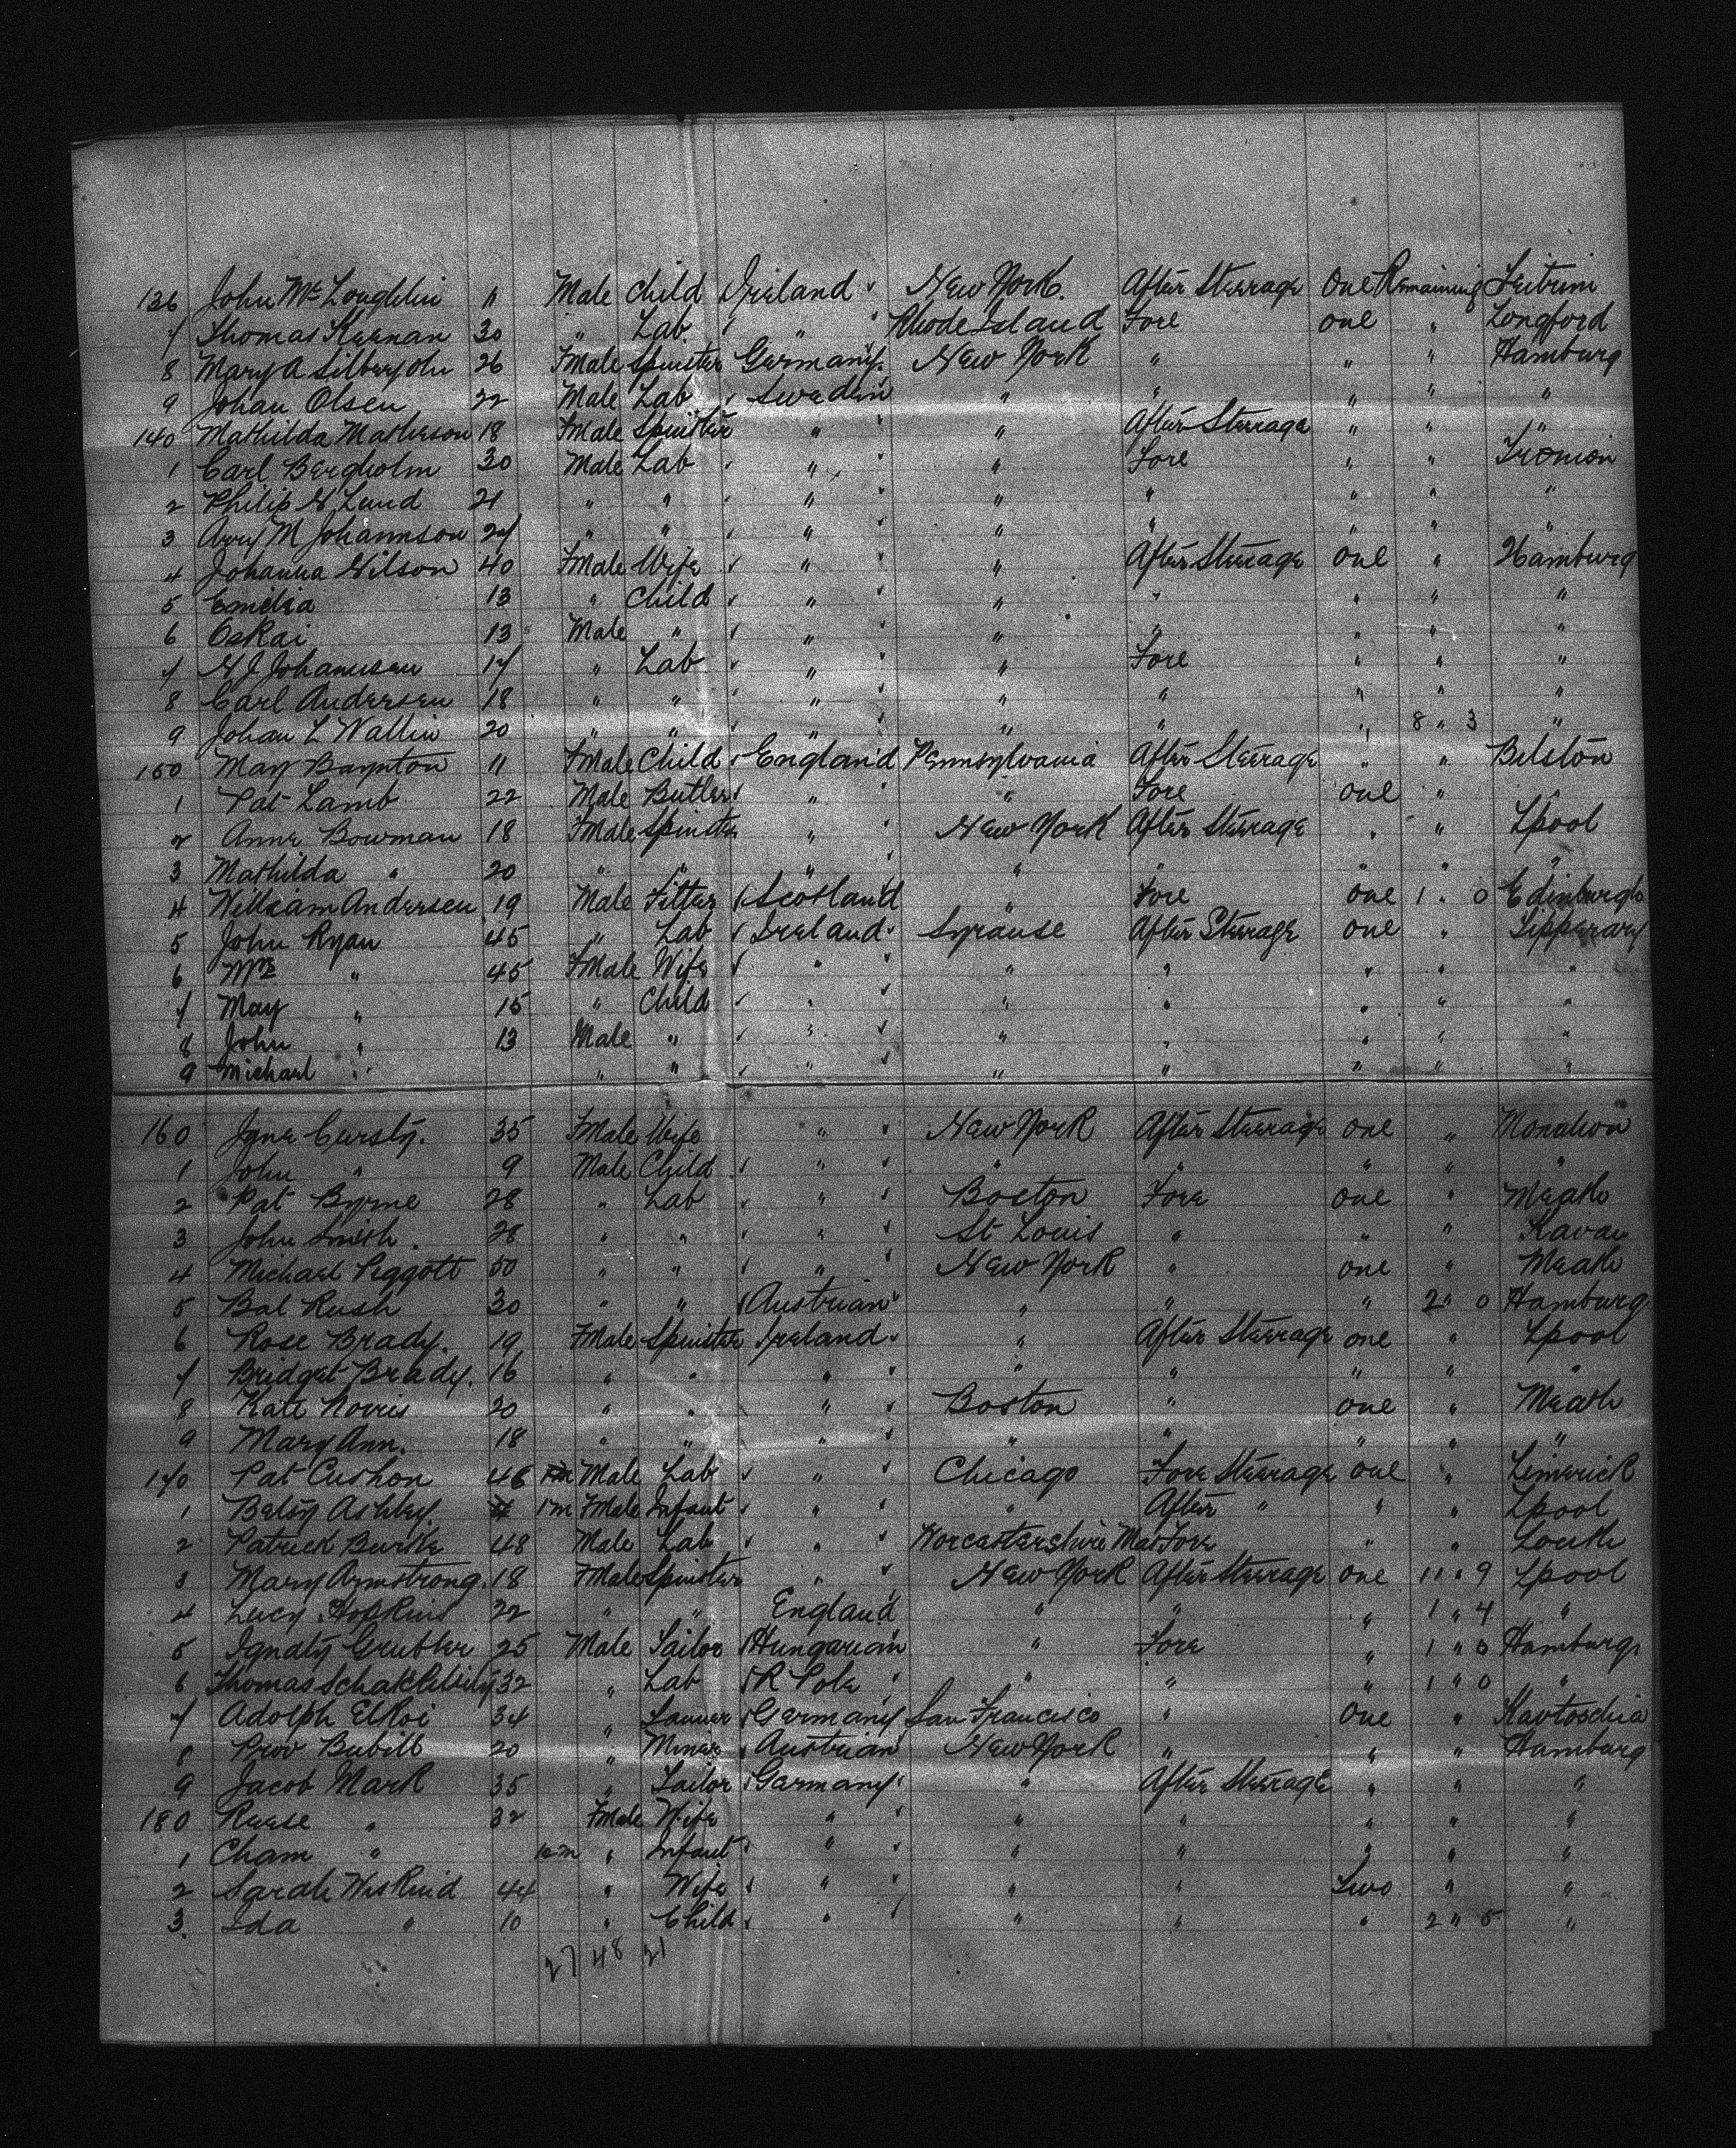 136 John McLoughlin 11 Male Child Ireland New York. After Steerage One Remaining Leitrim
7 Thomas Keenan 30 " Lab " Rhode Island Fore one " Longford
8 Mary A 26 FMale Spinster Germany New York " " " Hamburg
9 Johan Olsen 22 Male Lab Sweden " " " " "
140 Mathilda Matheson 18 FMale Spinster " " After Steerage " " "
1 Carl Bergholm 30 Male Lab " " Fore " "
2 Philip N Lund 21 " " " " " " " "
3 M Johannson 27 " " " " " " " "
4 Johanna Nilson 40 FMale Wife " " After Steerage One " Hamburg
5 Emilia 13 " Child " " " " " "
6 Oskai 13 Male " " " " " " "
7 N J Johannsen 17 " Lab " " Fore " " "
8 Carl Andersen 18 " " " " " " " "
9 Johan L Wallin 20 " " " " " " 8 " 3 "
150 May Baynton 11 FMale Child England Pennsylvania After Steerage " " Bilston
1 Pat Lamb 22 Male Butler " " Fore one " "
2 Anne Bowman 18 FMale Spinster " New York After Steerage " " Lpool
3 Mathilda " 20 " " " " " " "
4 William Andersen 19 Male Fitter Scotland " Fore one 1 " 0 Edinburgh
5 John Ryan 45 " Lab Ireland Syrause After Steerage one " Tipperary
6 Mrs " 45 FMale Wife " " " " " "
7 May " 15 " Child " " " " " "
8 John " 13 Male " " " " " " "
9 Michael " " " " " " " " "
160 Jane 35 FMale Wife " New York After Steerage one "
1 John " 9 Male Child " " " " " "
2 Pat Byrne 28 " Lab " Boston Fore one " Meath
3 John Smith. 28 " " " St Louis " " " Kavan
4 Michael Peggott 50 " " " New York " one " Meath
5 Bal Rush 30 " " Austrian " " " 2 " 0 Hamburg
6 Rose Brady. 19 FMale Spinster Ireland " After Steerage one " Lpool
7 Bridget Brady. 16 " " " " " " " "
8 Kate Norris 20 " " " Boston " one " Meath
9 Mary Ann. 18 " " " " " " " "
170 Pat Cushon 46 Male Lab " Chicago Fore Steerage one " Limerick
1 Betsy Ashley. 1m FMale Infant " " After " " " Lpool
2 Patrick Burke 48 Male Lab " Worcastershire Mas Fore " " Louth
3 Mary Armstrong. 18 FMale Spinster " New York After Steerage one 11 " 9 Lpool
4 Lucy Hopkins 22 " " England " " " 1 " 4 "
5 Ignaty Grubler 25 Male Tailor Hungarian " Fore " 1 " 0 Hamburg
6 Thomas 32 " Lab R Pole " " " 1 " 0 "
7 Adolph 34 " Germany San Francisco " One "
8 Bubill 20 " Miner Austrian New York " " " Hamburg
9 Jacob Mark 35 " Tailor Germany " After Steerage " " "
180 Reese " 32 FMale Wife " " " " " "
1 Cham " " Infant " " " " " "
2 Sarah Wiskind 44 " Wife " " " Two " "
3. Ida " 10 " Child " " " " 2 " 5 "
27 48 21